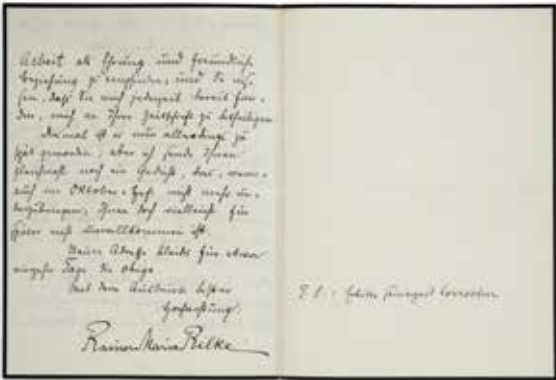 Arbeit als Ehrung und freundliche
Beziehung zu empfinden, und Sie wis-
sen, daß Sie mich jederzeit bereit fin-
den, mich an Ihrer Zeitschrift zu betheiligen.
Diesmal ist es nun allerdings zu
spät geworden, aber ich sende Ihnen
gleichwohl noch ein Gedicht, das, wenn
auch im Oktober-Heft nicht mehr un-
terzubringen, Ihnen doch vielleicht für
später nicht unwillkommen ist.
Meine Adresse bleibt für etwa
vierzehn Tage die obige.
Mit dem Ausdruck bester
Hochachtung:
Rainer Maria Rilke
P. S.: Erbitte